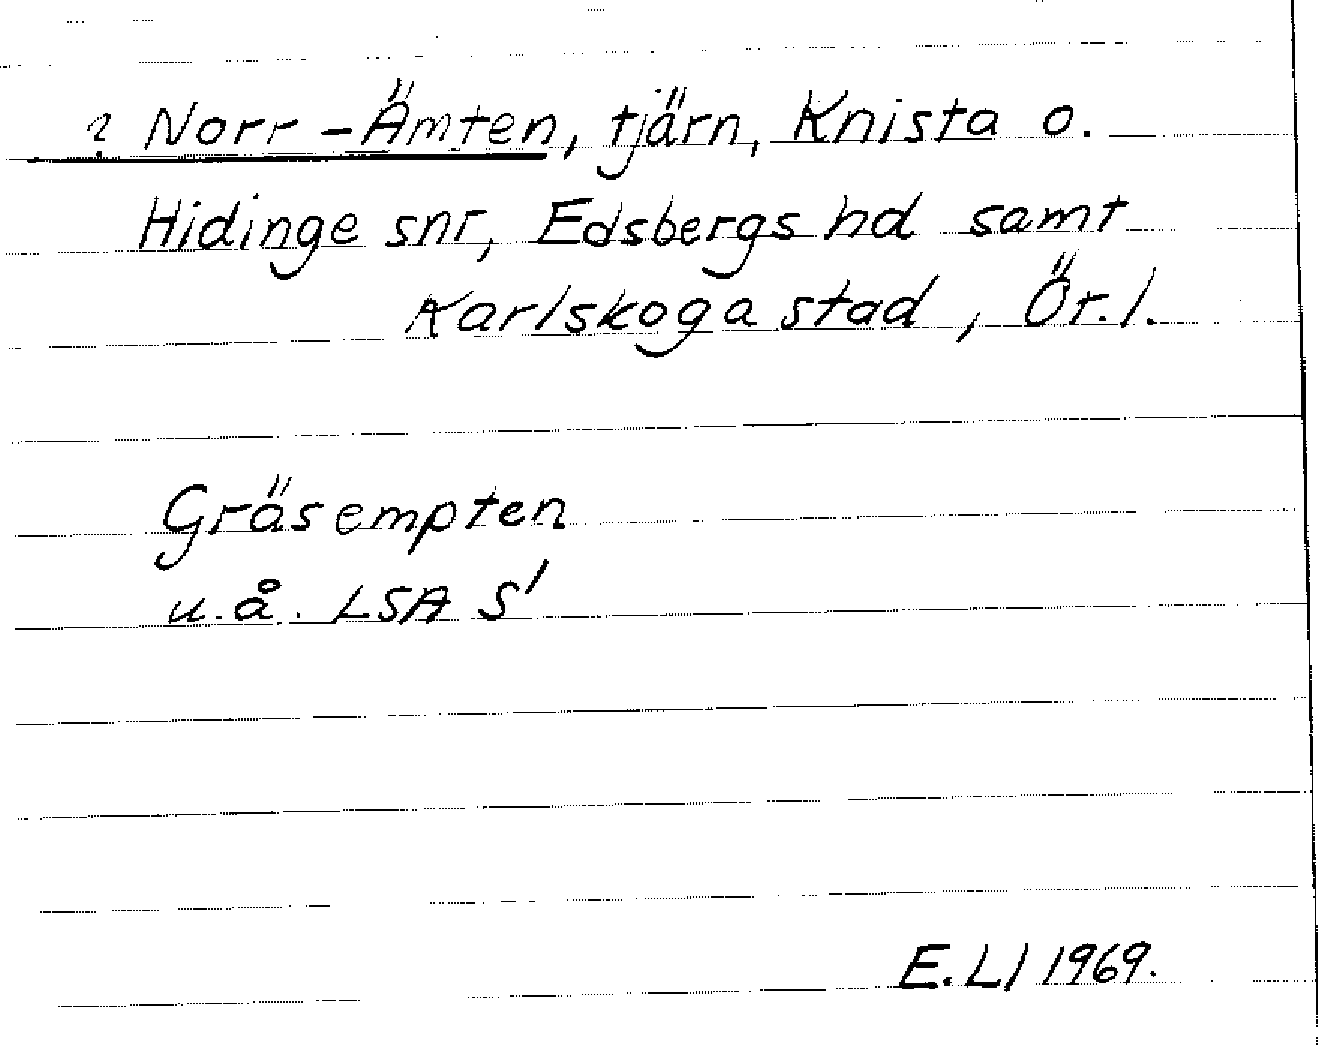 ? Norr-Ämten, tjärn, Knista o.
Hidinge snr, Edsbergs hd samt
Karlskoga stad, Ör.l.
Gräsempten
u.å. LSA S'
E.Ll 1969.